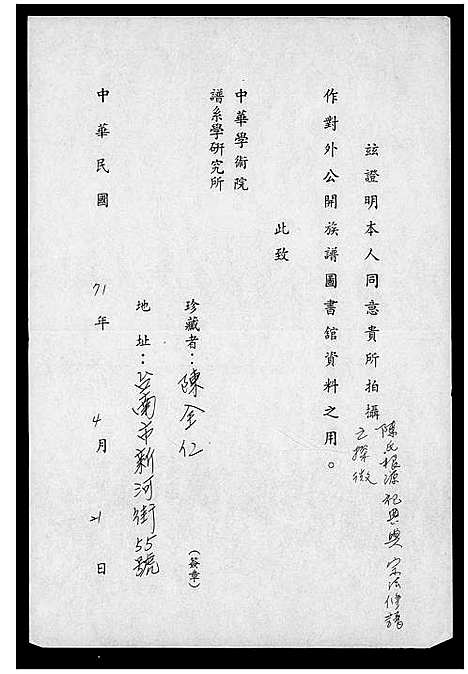 玆證明本人同意貴所拍攝陳氏根源祀典與宗法修譜
之探微
作對外公開族譜圖書館資料之用。
此致
中華學術院
譜系學研究所
珍藏者：陳全仁（簽章）
地址：台南市新河街55號
中華民國71年4月21日